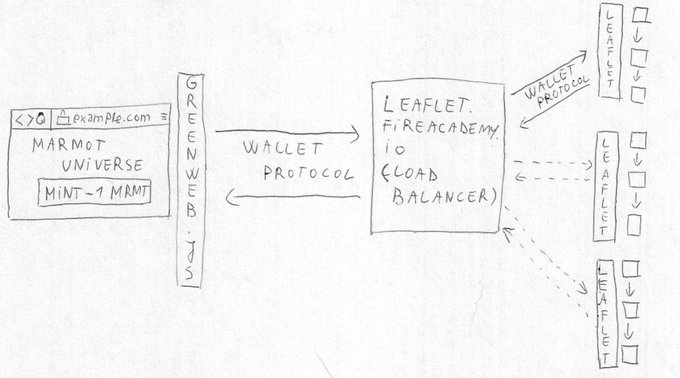 example.com
MARMOT
UNIVERSE
MINT ~1 MRMT
GREENWEB.js
WALLET
PROTOCOL
LEAFLET.
FIREACADEMY.
io
(LOAD
BALANCER)
WALLET
PROTOCOL
LEAFLET
LEAFLET
LEAFLET